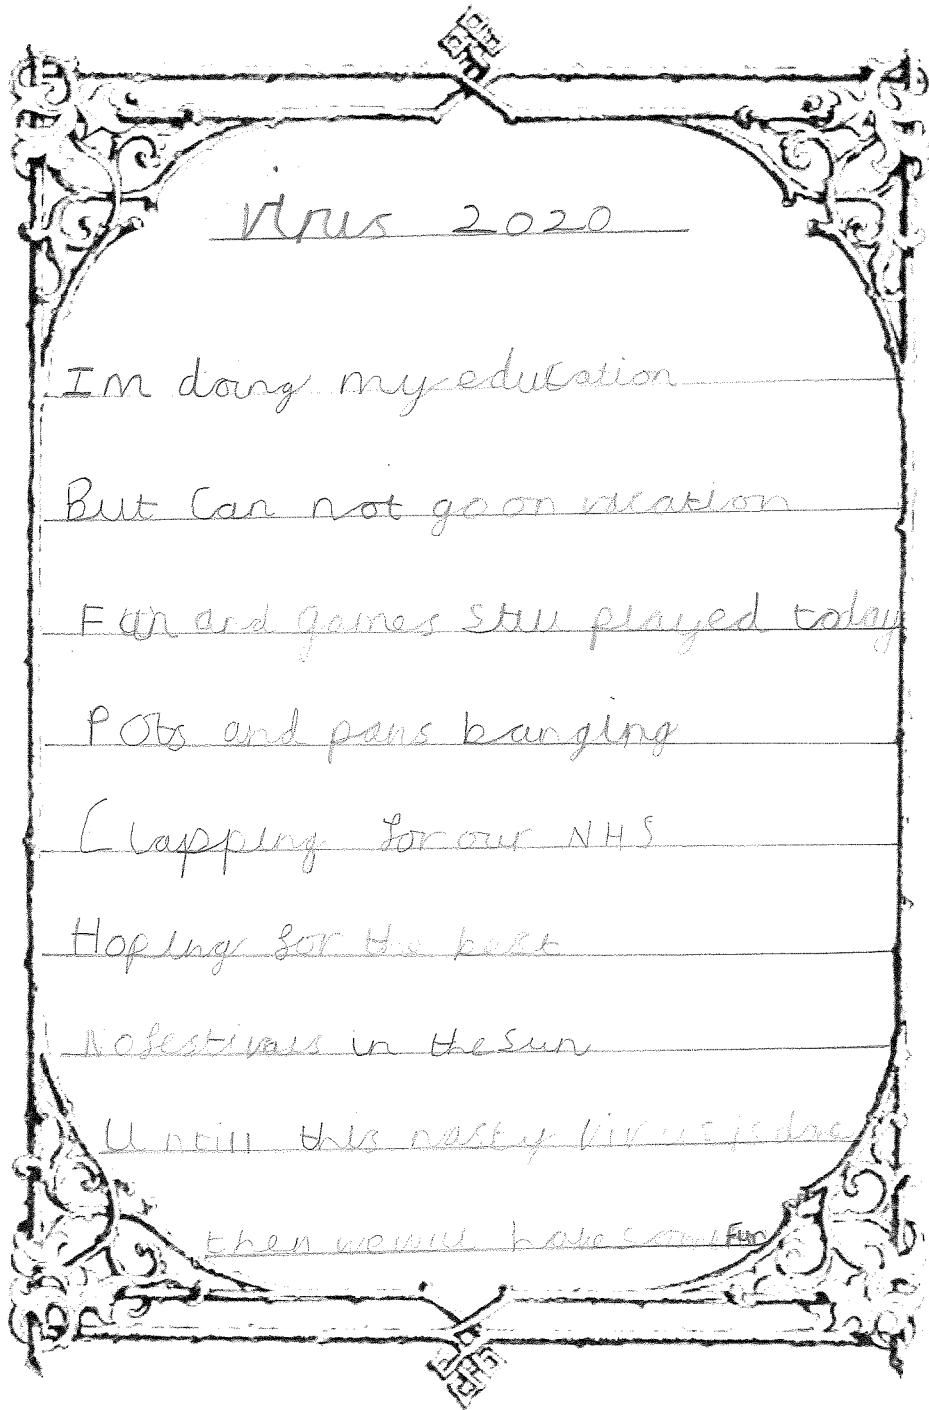 Virus 2020
Im doing my education
But Can not go on vacation
Fun and games still played today
Pots and pans banging
Clapping for our NHS
Hoping for the best
No festivals in the sun
Untill this nasty virus is done
then we will have some Fun